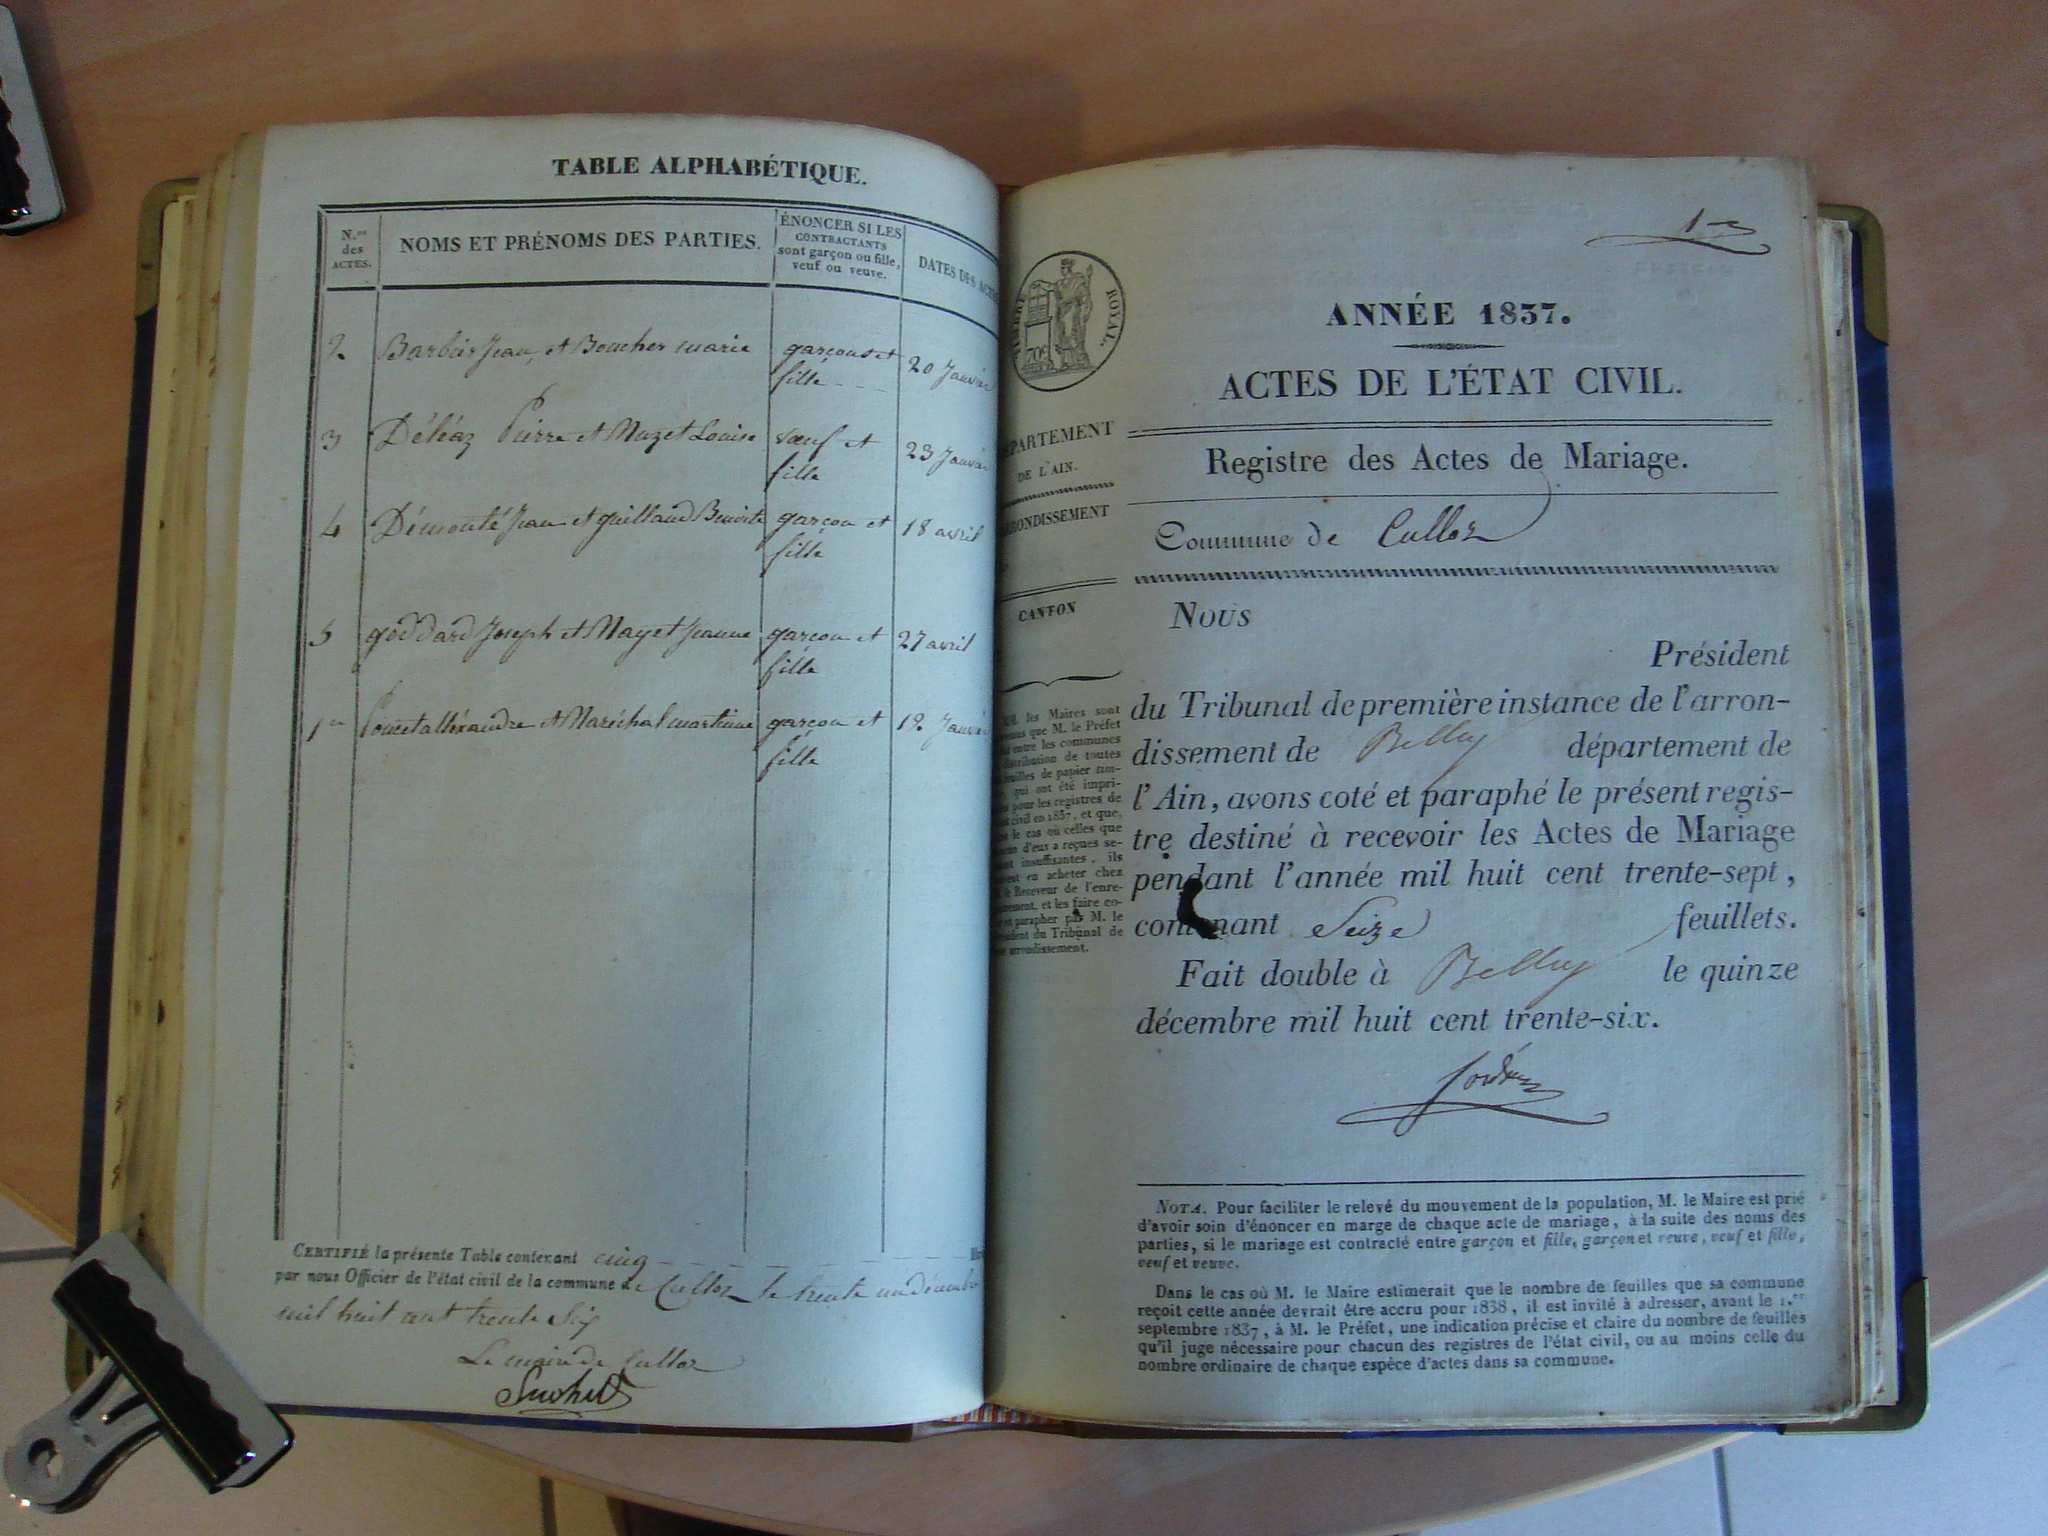 TABLE ALPHABÉTIQUE.
N.os des ACTES.
NOMS ET PRÉNOMS DES PARTIES.
ÉNONCER SI LES CONTRACTANTS sont garçon ou fille, veuf ou veuve.
DATES DES ACTES
2 Barbier Jean et Boucher marie garçon et 20 Janvier
fille
3 Déléaz Pierre et Mazet Louise veuf et 23 Janvier
fille
4 Démonté Jean et guilland Benoite garçon et 18 avril
fille
5 goddard Joseph et Mayet Jeanne garçon et 27 avril
fille
1er Poncet alléxandre et Maréchal martinne garçon et 12 Janvier
fille
CERTIFIÉ la présente Table contenant cinq
par nous Officier de l'état civil de la commune de Culloz le trente un décembre
mil huit cent trente Six
Le maire de Culloz
TIMBRE ROYAL.
70c
ANNÉE 1837.
ACTES DE L'ÉTAT CIVIL.
DÉPARTEMENT
DE L'AIN.
ARRONDISSEMENT
CANTON
MM. les Maires sont
que M. le Préfet
entre les communes
distribution de toutes
feuilles de papier tim-
qui ont été impri-
pour les registres de
civil en 1837, et que,
le cas où celles que
d'eux a reçues se-
insuffisantes, ils
en acheter chez
le Receveur de l'enre-
et les faire co-
et parapher par M. le
Président du Tribunal de
arrondissement.
Registre des Actes de Mariage.
Commune de Culloz
Nous
Président
du Tribunal de première instance de l'arron-
dissement de Belley département de
l'Ain, avons coté et paraphé le présent regis-
tre destiné à recevoir les Actes de Mariage
pendant l'année mil huit cent trente-sept,
contenant Seize feuillets.
Fait double à Belley le quinze
décembre mil huit cent trente-six.
NOTA. Pour faciliter le relevé du mouvement de la population, M. le Maire est prié
d'avoir soin d'énoncer en marge de chaque acte de mariage, à la suite des noms des
parties, si le mariage est contracté entre garçon et fille, garçon et veuve, veuf et fille,
veuf et veuve.
Dans le cas où M. le Maire estimerait que le nombre de feuilles que sa commune
reçoit cette année devrait être accru pour 1838, il est invité à adresser, avant le 1.er
septembre 1837, à M. le Préfet, une indication précise et claire du nombre de feuilles
qu'il juge nécessaire pour chacun des registres de l'état civil, ou au moins celle du
nombre ordinaire de chaque espèce d'actes dans sa commune.